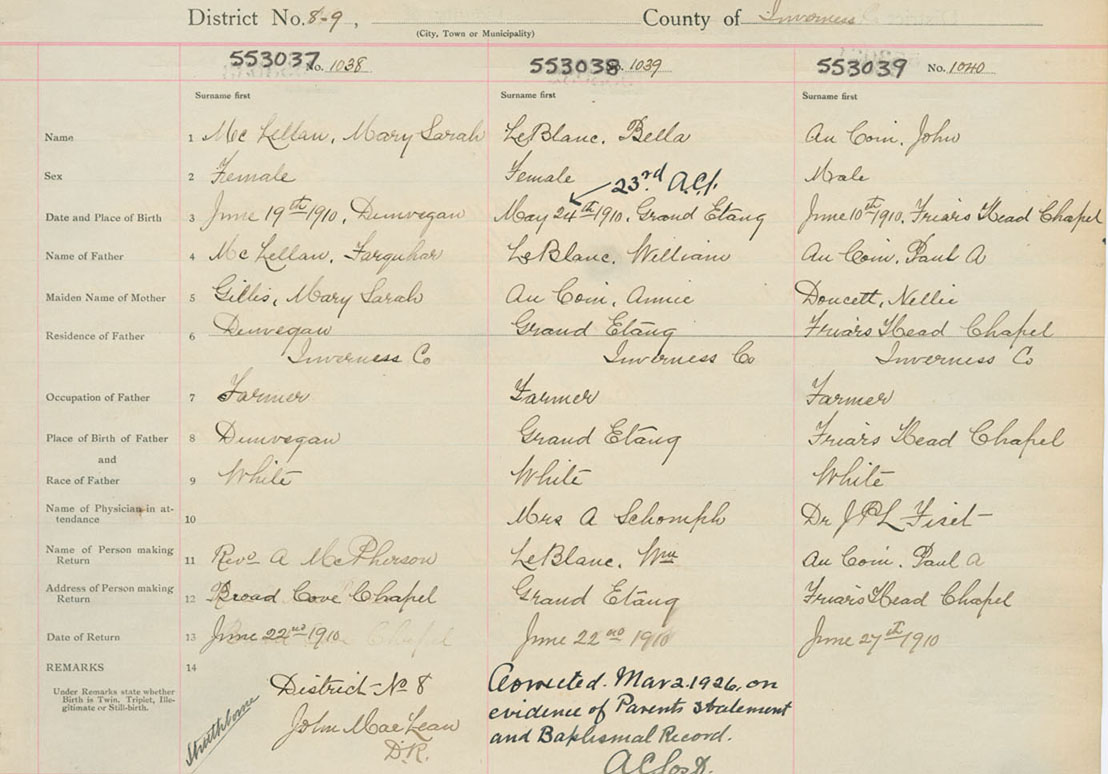 District No. 8-9, County of Inverness
(City, Town or Municipality)
553037 No. 1038 553038 1039 553039 No. 1040
Surname first Surname first Surname first
Name 1 Mc Lellan, Mary Sarah LeBlanc, Bella Au Coin, John
Sex 2 Female Female Male
23rd A.C.J.
Date and Place of Birth 3 June 19th 1910, Dunvegan May 24th 1910, Grand Etang June 10th 1910, Friars Head Chapel
Name of Father 4 Mc Lellan, Farquhar LeBlanc, William Au Coin, Paul A
Maiden Name of Mother 5 Gillis, Mary Sarah Au Coin, Annie Doucett, Nellie
Residence of Father 6 Dunvegan Grand Etang Friars Head Chapel
Inverness Co Inverness Co Inverness Co
Occupation of Father 7 Farmer Farmer Farmer
Place of Birth of Father 8 Dunvegan Grand Etang Friars Head Chapel
and
Race of Father 9 White White White
Name of Physician in at-
tendance 10 Mrs A Schomph Dr J P L Fiset
Name of Person making
Return 11 Revd A McPherson LeBlanc, Wm Au Coin, Paul A
Address of Person making
Return 12 Broad Cove Chapel Grand Etang Friars Head Chapel
Date of Return 13 June 22nd 1910 June 22nd 1910 June 27th 1910
REMARKS 14
Under Remarks state whether
Birth is Twin, Triplet, Ille-
gitimate or Still-birth.
District No 8
John MacLean
D.R.
Strathborne
Corrected Mar 2 1926, on
evidence of Parents statement
and Baptismal Record.